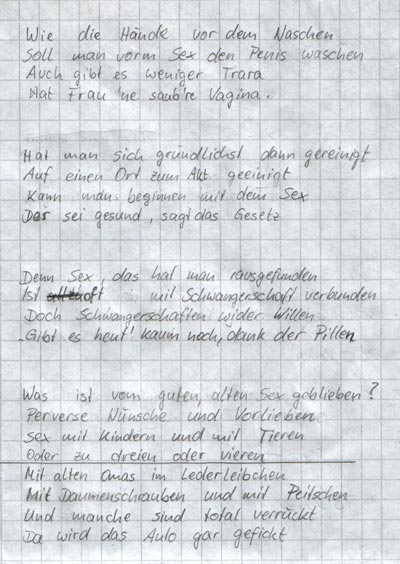 Wie die Hände vor dem Naschen
Soll man vorm Sex den Penis waschen
Auch gibt es weniger Trara
Hat Frau 'ne saub're Vagina.
Hat man sich gründlichst dann gereinigt
Auf einen Ort zum Akt geeinigt
Kann man beginnen mit dem Sex
Das sei gesund, sagt das Gesetz
Denn Sex, das hat man rausgefunden
Ist oft mit Schwangerschaft verbunden
Doch Schwangerschaften wider Willen
Gibt es heut' kaum noch, dank der Pillen
Was ist vom guten, alten Sex geblieben?
Perverse Wünsche und Vorlieben
Sex mit Kindern und mit Tieren
Oder zu dreien oder vieren
Mit alten Omas im Lederleibchen
Mit Daumenschrauben und mit Peitschen
Und manche sind total verrückt
Da wird das Auto gar gefickt